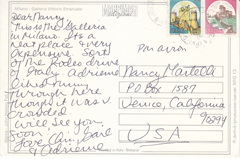 Milano - Galleria Vittorio Emanuele
Dear Nancy,
This is the Galleria
in Milano. Its a
neat place & very
expensive. Sort
of the Rodeo drive
of Italy. Adriene
through here
though it was v.
crowded
Will see you
soon
Love
& Adriene
Par avion
Nancy Martelli
P.O Box 1587
Venice, California
90294
USA